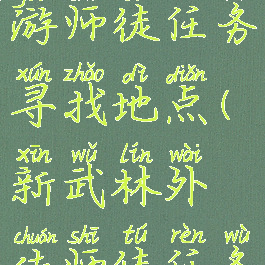 游师徒任务
xún zhǎo dì diǎn
寻找地点(
xīn wǔ lín wài
新武林外
chuán shī tú rèn wù
师徒任务